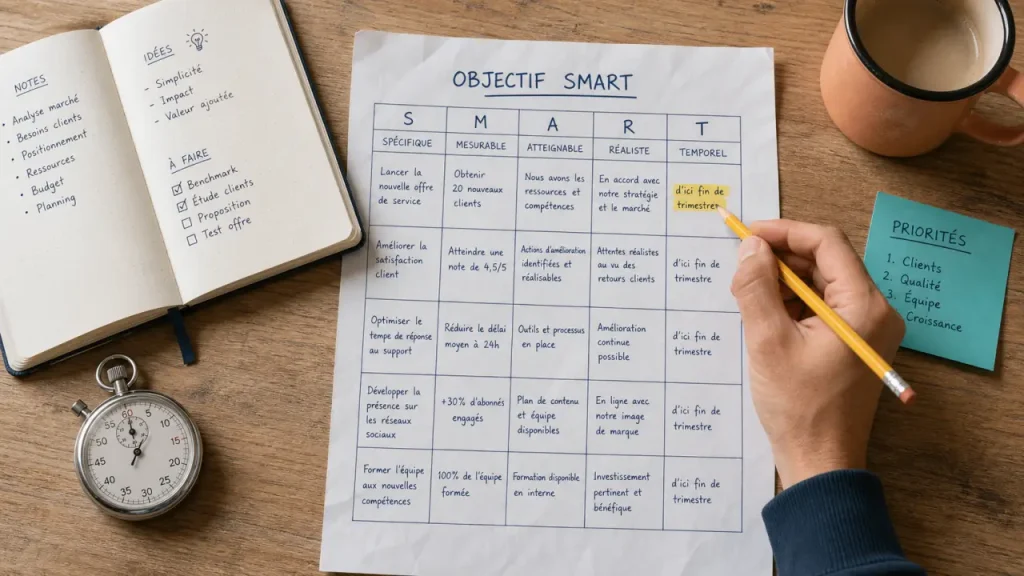 NOTES
• Analyse marché
• Besoins clients
• Positionnement
• Ressources
• Budget
• Planning
IDÉES
- Simplicité
- Impact
- Valeur ajoutée
À FAIRE
☑ Benchmark
☑ Étude clients
☐ Proposition
☐ Test offre
OBJECTIF SMART
S M A R T
SPÉCIFIQUE MESURABLE ATTEIGNABLE RÉALISTE TEMPOREL
Lancer la
nouvelle offre
de service
Obtenir
20 nouveaux
clients
Nous avons les
ressources et
compétences
En accord avec
notre stratégie
et le marché
d'ici fin de
trimestre
Améliorer la
satisfaction
client
Atteindre une
note de 4,5/5
Actions d'amélioration
identifiées et
réalisables
Attentes réalistes
au vu des
retours clients
d'ici fin de
trimestre
Optimiser le
temps de réponse
au support
Réduire le délai
moyen à 24h
Outils et processus
en place
Amélioration
continue
possible
d'ici fin de
trimestre
Développer la
présence sur
les réseaux
sociaux
+30% d'abonnés
engagés
Plan de contenu
et équipe
disponibles
En ligne avec
notre image
de marque
d'ici fin de
trimestre
Former l'équipe
aux nouvelles
compétences
100% de l'équipe
formée
Formation disponible
en interne
Investissement
pertinent et
bénéfique
d'ici fin de
trimestre
PRIORITÉS
1. Clients
2. Qualité
3. Équipe
Croissance
60
5
10
15
20
25
30
35
40
45
50
55